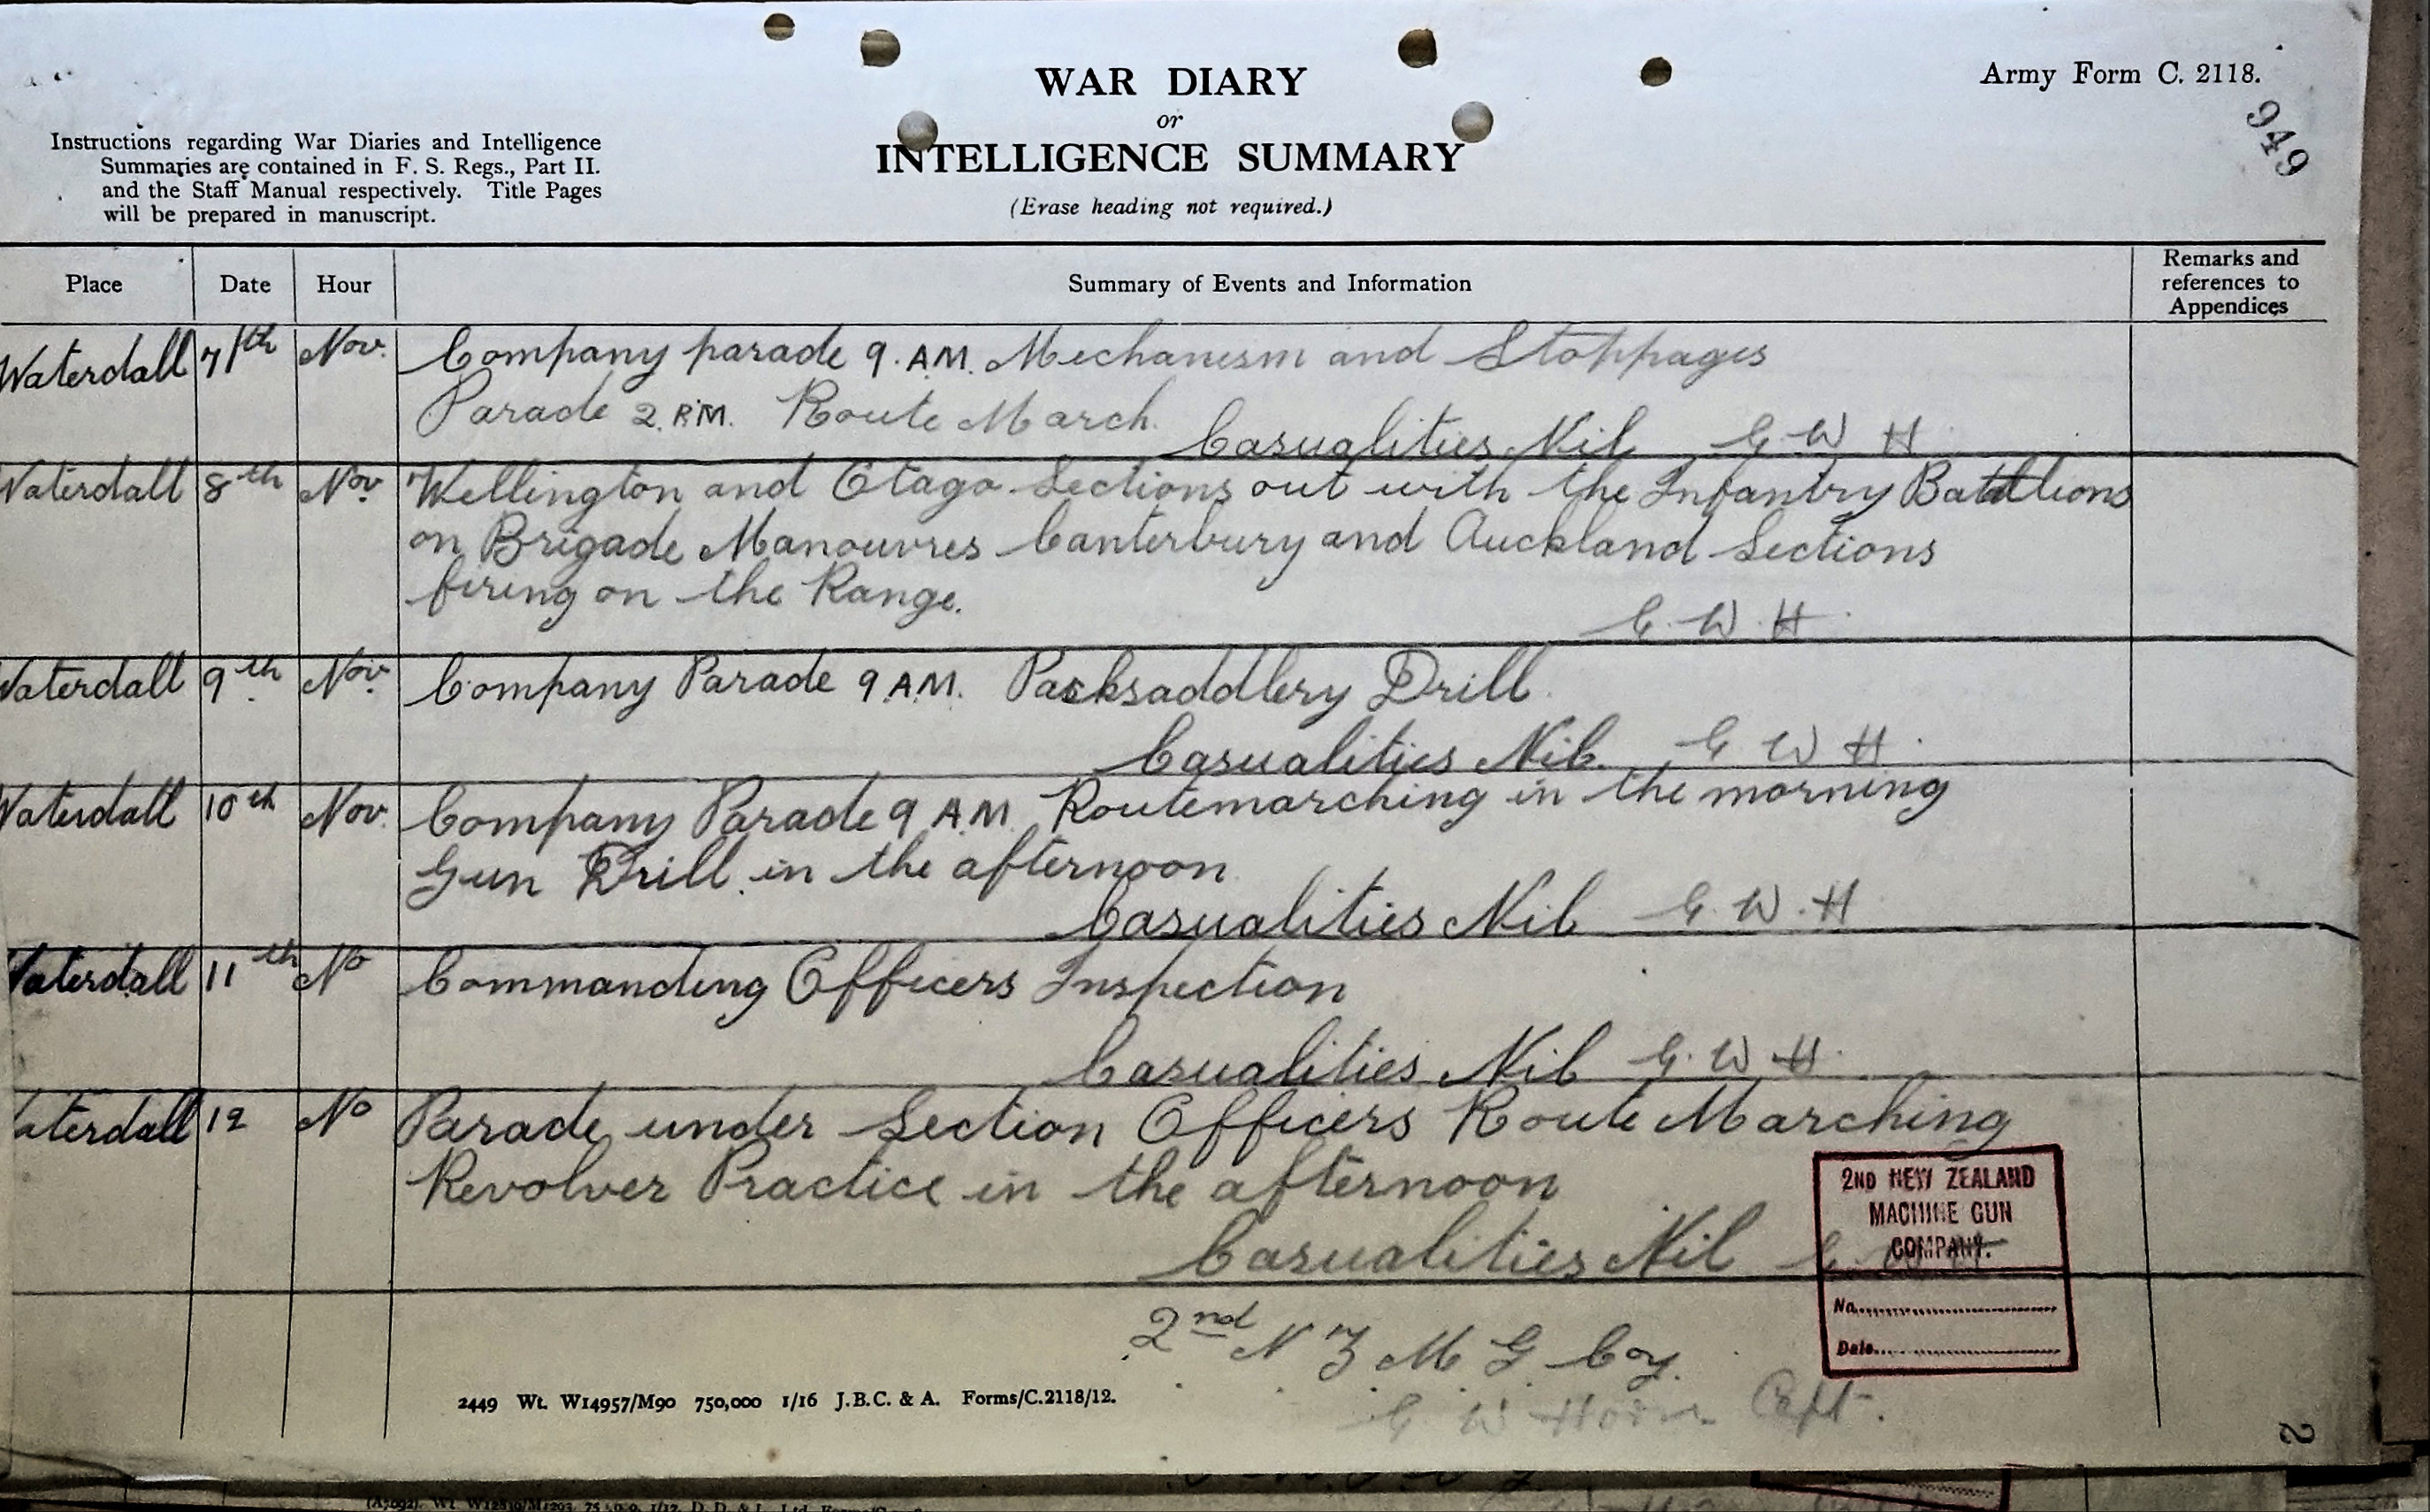 WAR DIARY
or
INTELLIGENCE SUMMARY
(Erase heading not required.)
Army Form C. 2118.
949
Instructions regarding War Diaries and Intelligence
Summaries are contained in F. S. Regs., Part II.
and the Staff Manual respectively. Title Pages
will be prepared in manuscript.
Place Date Hour Summary of Events and Information Remarks and
references to
Appendices
Waterdall 7th Nov. Company parade 9. A.M. Mechanism and Stoppages
Parade 2. P.M. Route March.
Casualities Nil G W H
Waterdall 8th Nov. Wellington and Otago Sections out with the Infantry Battlions
on Brigade Manouvres Canterbury and Auckland Sections
firing on the Range.
G. W. H.
Waterdall 9th Nov. Company Parade 9 A.M. Packsaddlery Drill.
Casualities Nil. G W H.
Waterdall 10th Nov. Company Parade 9 A.M. Routemarching in the morning
Gun Drill in the afternoon
Casualities Nil G. W. H
Waterdall 11th No Commanding Officers Inspection
Casualities Nil G. W H.
aterdall 12 No Parade under Section Officers Route Marching
Revolver Practice in the afternoon
Casualities Nil G W H
2ND NEW ZEALAND
MACHINE GUN
COMPANY.
No.
Date.
2nd N Z M G Coy.
G W Capt.
2449 Wt. W14957/M90 750,000 1/16 J.B.C. & A. Forms/C.2118/12.
2